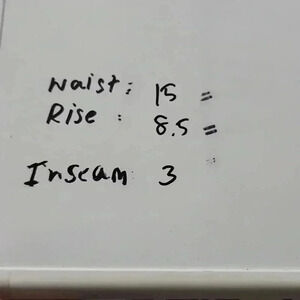 Waist: 15 =
Rise : 8.5 =
Inseam 3